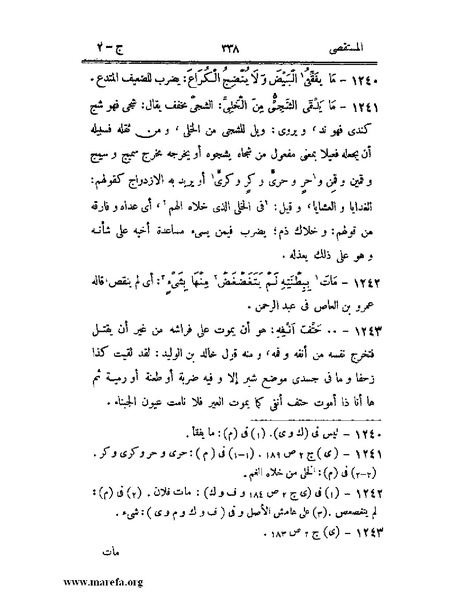 المستقصى ٣٣٨ ج - ٢
١٢٤٠ - مَا يَفْقَئُ١ الْبَيْضَ وَلَا يُنْضِجُ الْكُرَاعَ: يضرب للضعيف المتدع .
١٢٤١ - مَا يَلْقَى الشَّجِيُّ مِنَ الْخَلِيِّ: الشجيّ مخفف يقال: شجى فهو شج
كندى فهو ند، و يروى: ويل للشجى من الخلى، و من ثقله فسبيله
أن يجعله فعيلا بمعنى مفعول من شجاه يشجوه أو يخرجه مخرج سميج و سمج
و قمين و قمن و١حر و حرىّ و كر و كرىّ١ أو يريد به الازدواج كقولهم:
الغدايا و العشايا، و قيل: ٢فى الخلى الذى خلاه الهم٢، أى عداه و فارقه
من قولهم: و خلاك ذم؛ يضرب فيمن يسىء مساعدة أخيه على شأنه
و هو على ذلك يعذله .
١٢٤٢ - مَاتَ١ بِبِطْنَتِهِ لَمْ يَتَغَضْغَضْ٢ مِنْهَا بِشَىْءٍ٣: أى لم ينقص، قاله
عمرو بن العاص فى عبد الرحمن .
١٢٤٣ - ٠٠ حَتْفَ أَنْفِهِ: هو أن يموت على فراشه من غير أن يقتل
فتخرج نفسه من أنفه و فمه، و منه قول خالد بن الوليد: لقد لقيت كذا
زحفا و ما فى جسدى موضع شبر إلا و فيه ضربة أو طعنة أو رمية ثم
ها أنا ذا أموت حتف أنفى كما يموت العير فلا نامت عيون الجبناء .
١٢٤٠ - ليس فى (ك و ى). (١) فى (م): ما يفقأ .
١٢٤١ - (ى) ج ٢ ص ١٨٩ . (١-١) فى (م): حرى و حر و كرى و كر .
(٢-٢) فى (م): الخلى من خلاه الغم .
١٢٤٢ - (١) فى (ى ج ٢ ص ١٨٤ و ف و ك): مات فلان . (٢) فى (م):
لم يتغصغص. (٣) على هامش الأصل و فى (ف و ك و م و ى): شىء .
١٢٤٣ - (ى) ج ٢ ص ١٨٣ .
مات
www.marefa.org